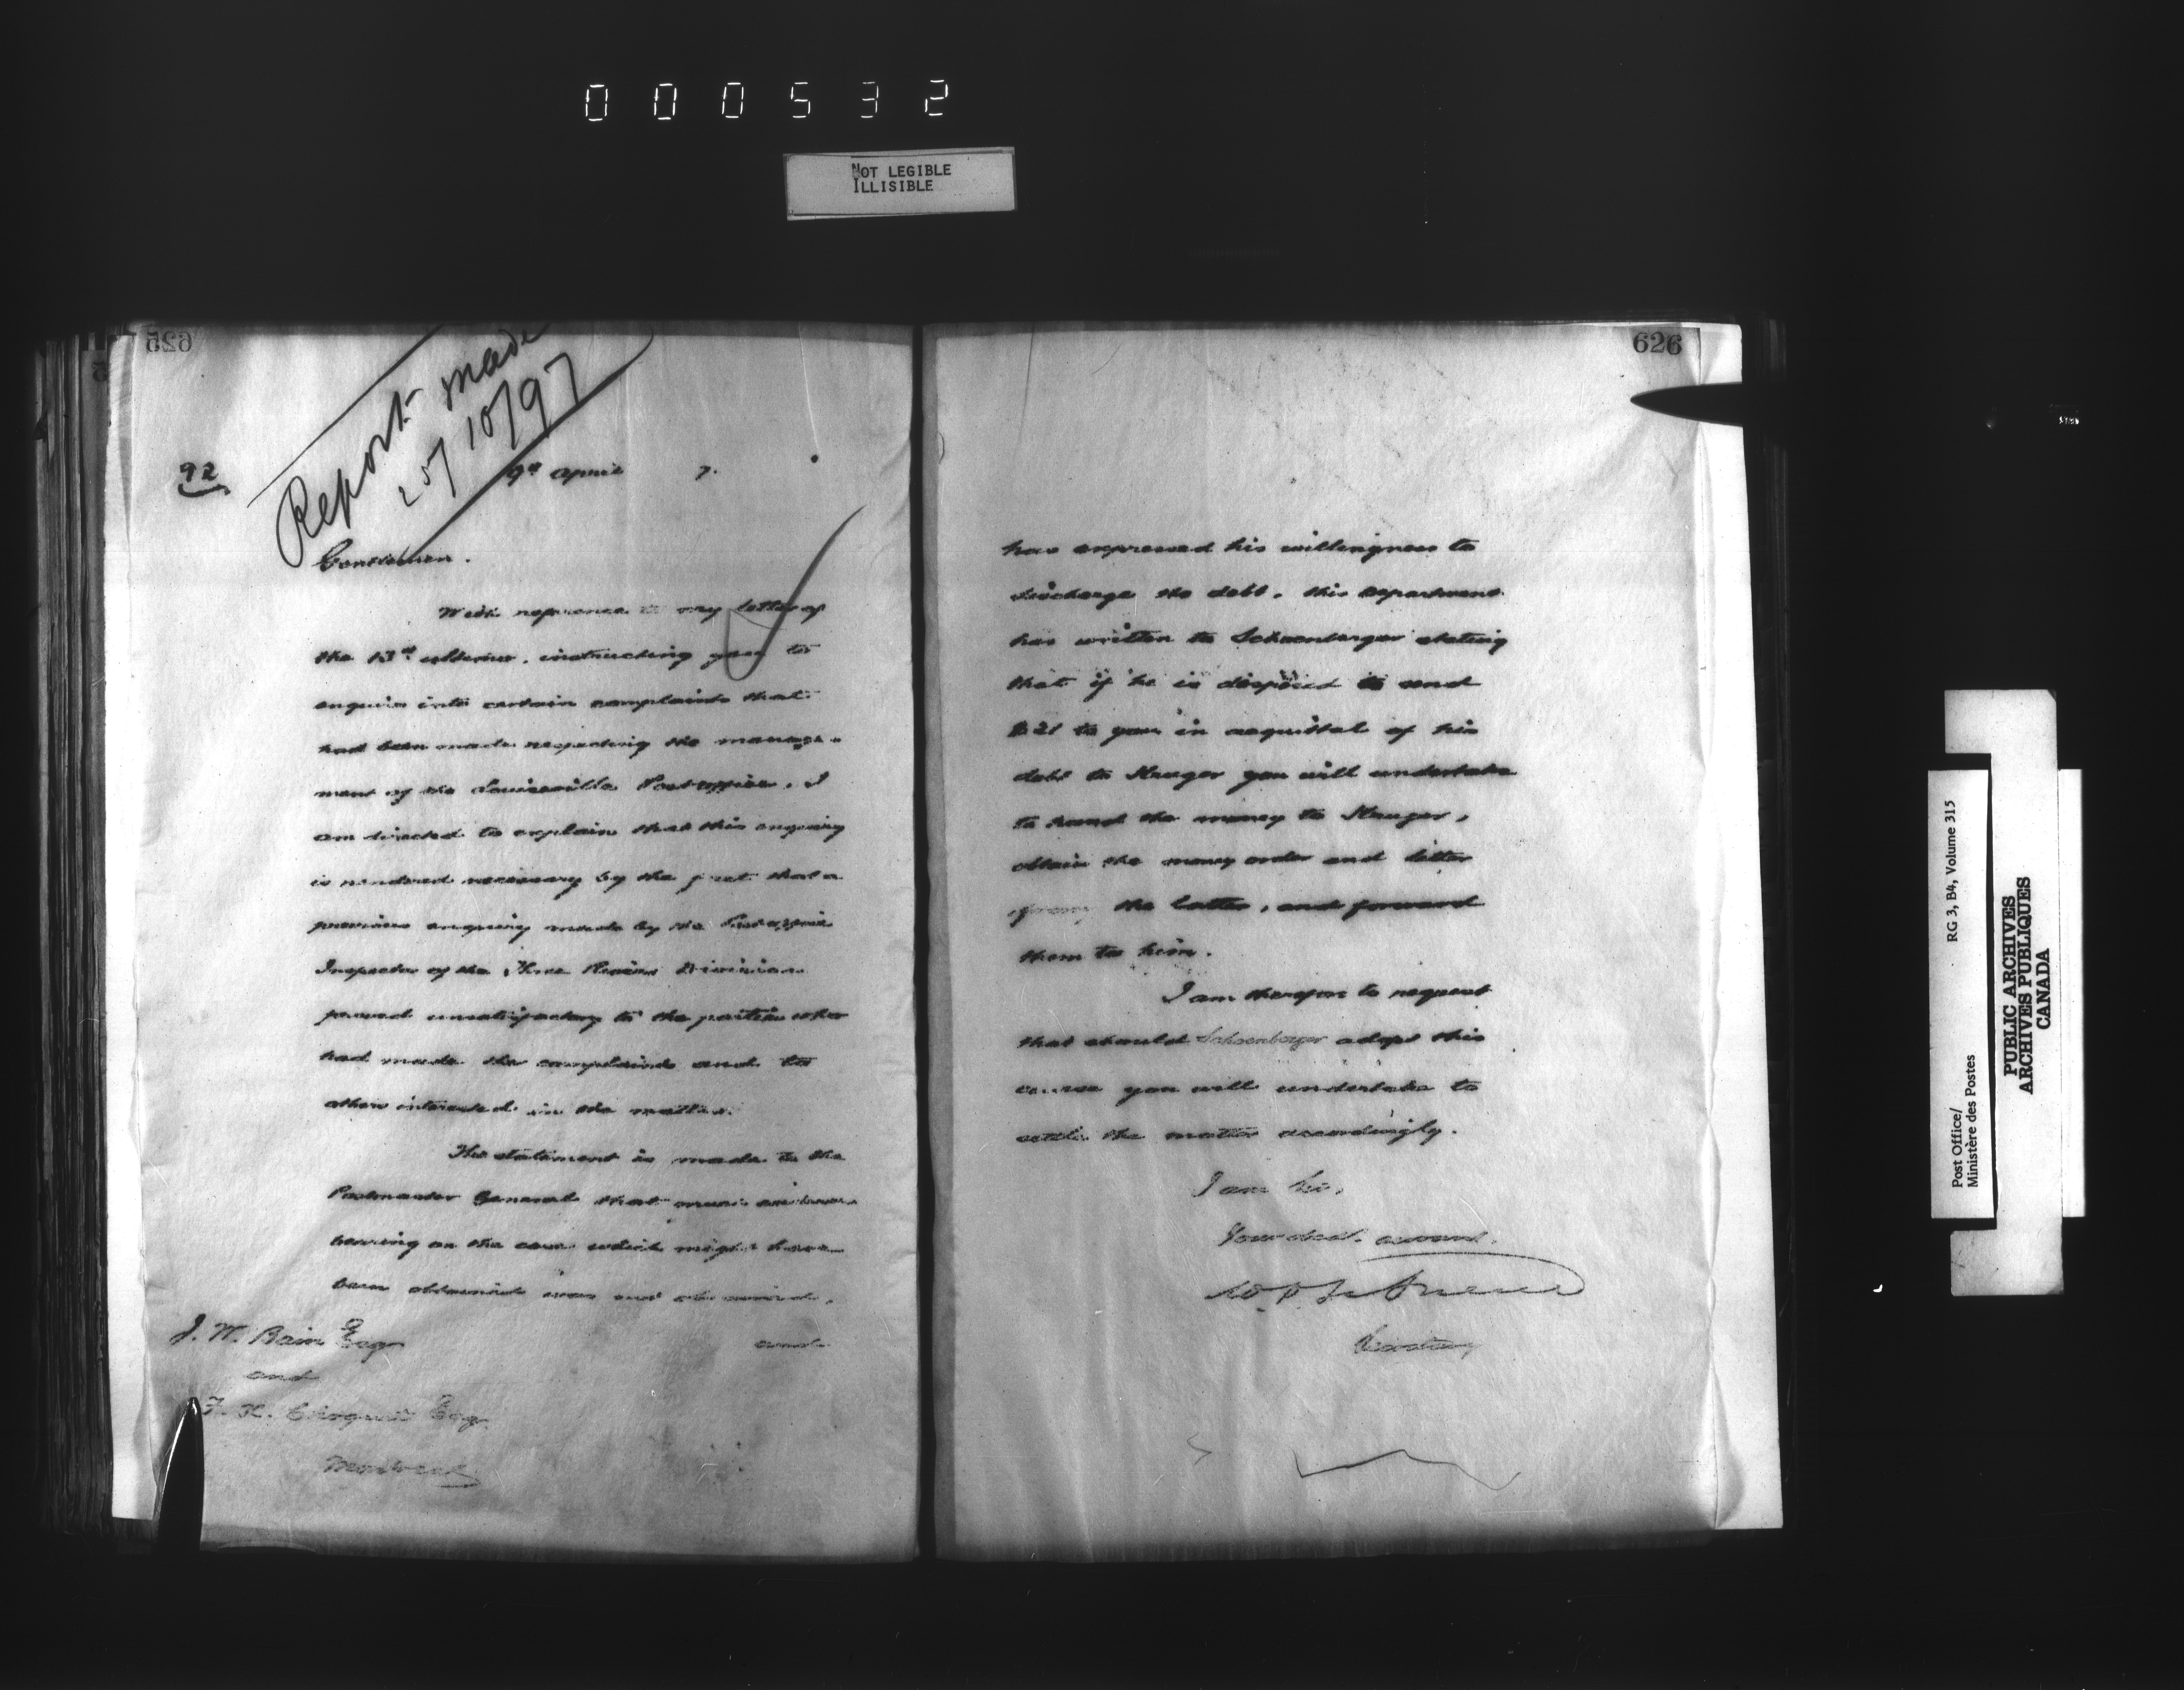 000532
NOT LEGIBLE
ILLISIBLE
625
Report made
25/10/97
92
9th April 7.
Gentlemen.
With reference to my letter of
the 13th ultimo, instructing you to
enquire into certain complaints that
had been made respecting the manage-
ment of the Louiseville Post office, I
am directed to explain that this enquiry
is rendered necessary by the fact that a
previous enquiry made by the Post office
Inspector of the Three Rivers Division
proved unsatisfactory to the parties who
had made the complaints and to
others interested in the matter.
The statement is made to the
Postmaster General that
bearing on the case which might have
been obtained was not obtained,
and
J. W. Bain Esq
and
F. X. Choquet Esq.
Montreal
626
has expressed his willingness to
discharge the debt, this department
has written to Schoenberger stating
that if he is disposed to send
$21 to you in acquittal of his
debt to Kruger you will undertake
to hand the money to Kruger,
obtain the money order and letter
from the latter, and forward
them to him.
I am therefore to request
that should Schoenberger adopt this
course you will undertake to
settle the matter accordingly.
I am Sir,
Your obed. servant.
Secretary
Post Office/
Ministère des Postes
RG 3, B4, Volume 315
PUBLIC ARCHIVES
ARCHIVES PUBLIQUES
CANADA